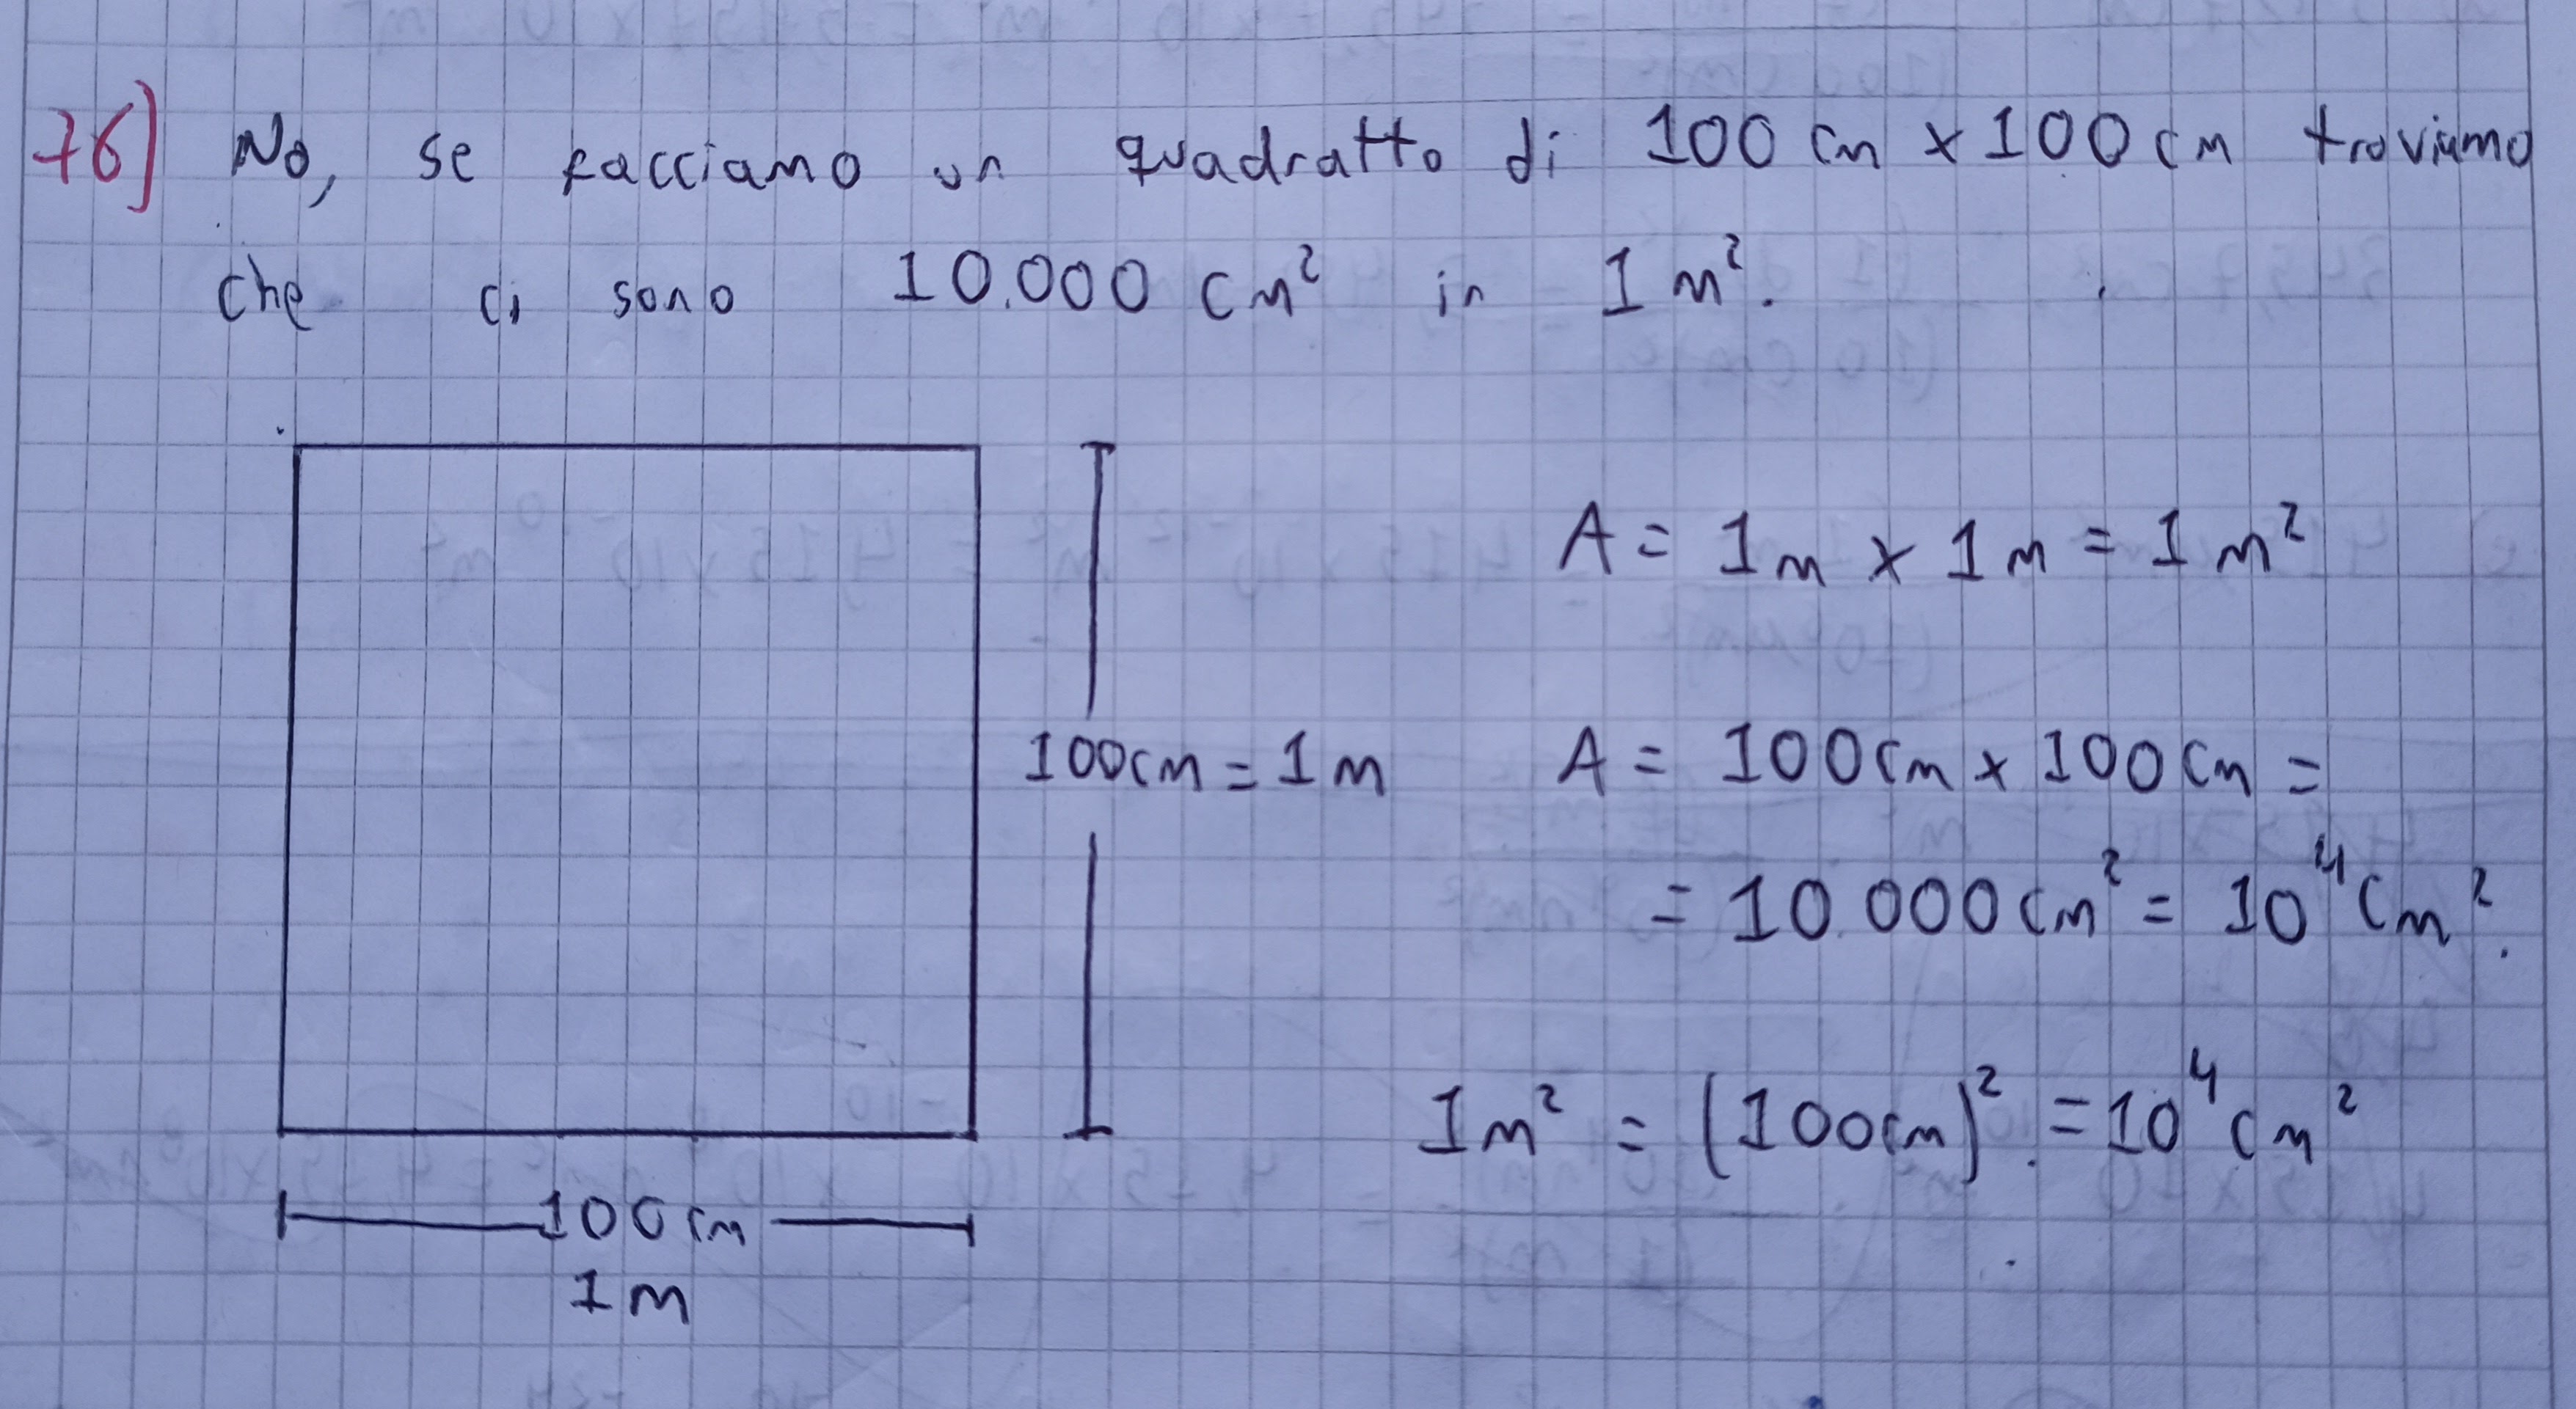 76) No, se facciamo un quadratto di 100 cm x 100 cm troviamo
che ci sono 10.000 cm² in 1 m².
A = 1m x 1m = 1 m²
100cm = 1m
A = 100cm x 100cm =
= 10.000 cm² = 10⁴ cm².
1m² = (100cm)². = 10⁴ cm²
100cm
1m